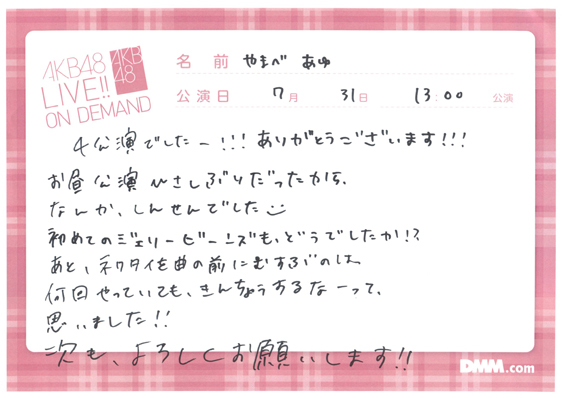 AKB48
LIVE!!
ON DEMAND
AKB
48
名前 やまべ あゆ
公演日 7月 31日 13:00 公演
4公演でしたー!!!ありがとうございます!!!
お昼公演ひさしぶりだったから、
なんか、しんせんでした
初めてのジェリービーンズも、どうでしたか!?
あと、ネクタイを曲の前にむすぶのは
何回やっていても、きんちょうするなーって、
思いました!!
次も、よろしくお願いします!!
DMM.com